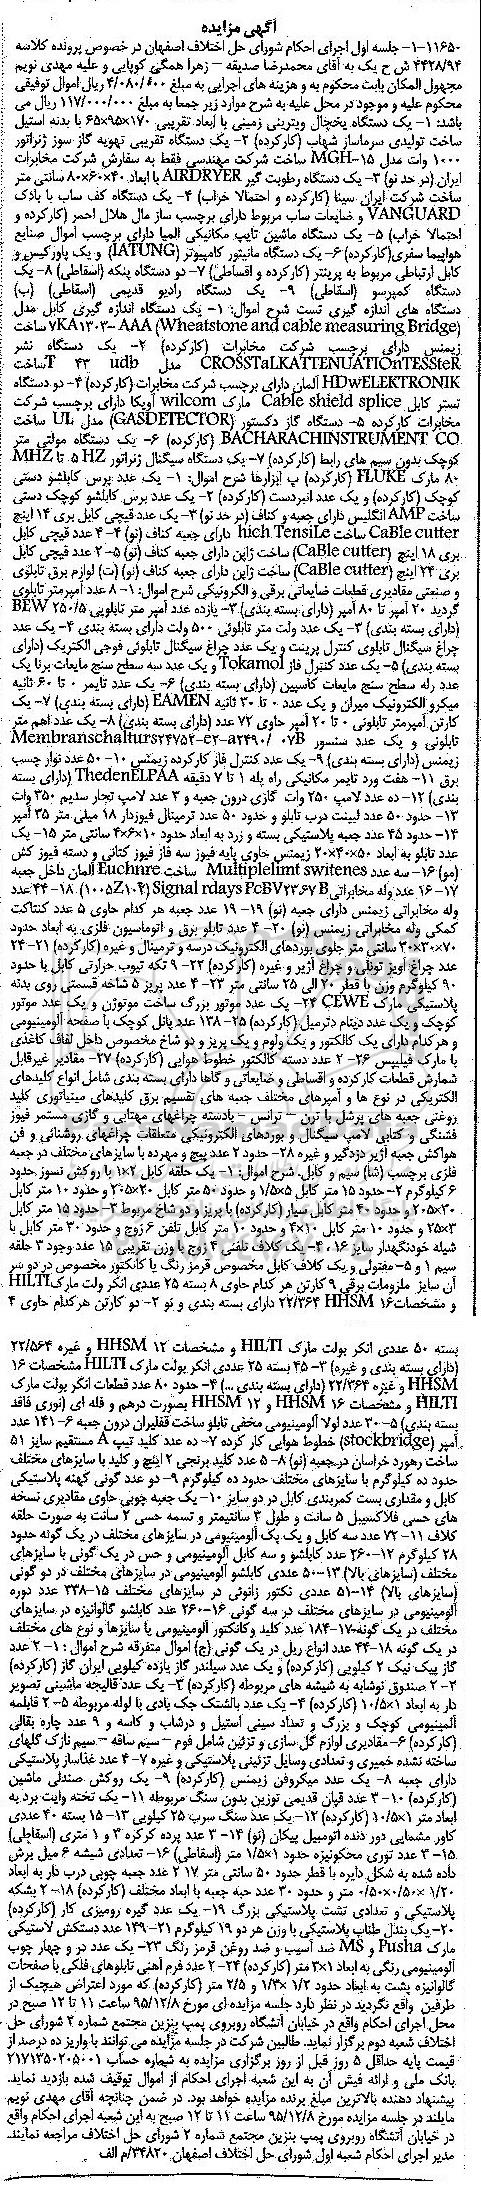 آگهی مزایده
۱-۱۱۶۵- جلسه اول اجرای احکام شورای حل اختلاف اصفهان در خصوص پرونده کلاسه
۴۴۲۸/۹۴ ش ح یک به آقای محمدرضا صدیقه - زهرا همگی کوپایی و علیه مهدی نویم
مجهول المکان بابت محکوم به و هزینه های اجرایی به مبلغ ۴/۰۸۰/۶۰۰ ریال اموال توقیفی
محکوم علیه و موجود در محل علیه به شرح موارد زیر جمعا به مبلغ ۱۱۷/۰۰۰/۰۰۰ ریال می
باشد: ۱- یک دستگاه یخچال ویترینی زمینی با ابعاد تقریبی ۱۷۰×۹۵×۶۵ با بدنه استیل
ساخت تولیدی سرماساز شهاب (کارکرده) ۲- یک دستگاه تقریبی تهویه گاز سوز ژنراتور
۱۰۰۰ وات مدل MGH-۱۵ ساخت شرکت مهندسی فقط به سفارش شرکت مخابرات
ایران (در حد نو) ۳- یک دستگاه رطوبت گیر AIRDRYER با ابعاد ۴۰×۶۰×۸۰ سانتی متر
ساخت شرکت ایران سینا (کارکرده و احتمالا خراب) ۴- یک دستگاه کف ساب با یادک
VANGUARD و ضایعات ساب مربوط دارای برچسب ساز مال هلال احمر (کارکرده و
احتمالا خراب) ۵- یک دستگاه ماشین تایپ مکانیکی المپا دارای برچسب اموال صنایع
هواپیما سفری (کارکرده) ۶- یک دستگاه مانیتور کامپیوتر (JATUNG) و یک پاورکیس و
کابل ارتباطی مربوط به پرینتر (کارکرده و اقساطی) ۷- دو دستگاه پنکه (اسقاطی) ۸- یک
دستگاه کمپرسو (اسقاطی) ۹- یک دستگاه رادیو قدیمی (اسقاطی) (ب)
دستگاه های اندازه گیری تست شرح اموال: ۱- یک دستگاه اندازه گیری کابل مدل
(Wheatstone and cable measuring Bridge) ۷KA۱۳۰۲- AAA ساخت
زیمنس دارای برچسب شرکت مخابرات (کارکرده) ۲- یک دستگاه نشر
CROSSTaLKATTENUATIOnTESSteR مدل T ۴۳ udb ساخت
HDwELEKTRONIK آلمان دارای برچسب شرکت مخابرات (کارکرده) ۴- دو دستگاه
تستر کابل Cable shield splice مارک wilcom آویکا دارای برچسب شرکت
مخابرات کارکرده ۵- دستگاه گاز دکستور (GASDETECTOR) مدل UL ساخت
BACHARACHINSTRUMENT CO (کارکرده) ۶- یک دستگاه مولتی متر
کوچک بدون سیم های رابط (کارکرده) ۷- یک دستگاه سیگنال ژنراتور ۵ HZ تا MHZ
۸۰ مارک FLUKE (کارکرده) پ ابزارها شرح اموال: ۱- یک عدد پرس کابلشو دستی
کوچک (کارکرده) و یک عدد انبردست (کارکرده) ۲- یک عدد پرس کابلشو کوچک دستی
ساخت AMP انگلیس دارای جعبه و کناف (در حد نو) ۳- یک عدد قیچی کابل بری ۱۴ اینچ
CaBle cutter ساخت hich TensiLe دارای جعبه کناف (نو) ۴- ۴ عدد قیچی کابل
بری ۱۸ اینچ (CaBle cutter) ساخت ژاپن دارای جعبه کناف (نو) ۵- ۲ عدد قیچی کابل
بری ۲۴ اینچ (CaBle cutter) ساخت ژاپن دارای جعبه کناف (نو) (ت) لوازم برق تابلوی
و صنعتی مقادیری قطعات ضایعاتی برقی و الکترونیکی شرح اموال: ۱- ۸ عدد آمپرمتر تابلوی
گردید ۲۰ آمپر تا ۸۰ آمپر (دارای بسته بندی) ۲- یازده عدد آمپر متر تابلویی ۲۵۰/۵ BEW
(دارای بسته بندی) ۳- یک عدد ولت متر تابلوئی ۵۰۰ ولت دارای بسته بندی ۴- یک عدد
چراغ سیگنال تابلوی کنترل پرینت و یک عدد چراغ سیگنال تابلوئی فوجی الکتریک (دارای
بسته بندی) ۵- یک عدد کنترل فاز Tokamol و یک عدد سه سطح سنج مایعات برنا یک
عدد رله سطح سنج مایعات کاسپین (دارای بسته بندی) ۶- یک عدد تایمر ۰ تا ۶۰ ثانیه
میکرو الکترونیک میران و یک عدد ۰ تا ۳۰ ثانیه EAMEN (دارای بسته بندی) ۷- یک
کارتن آمپرمتر تابلوئی ۰ تا ۲۰ آمپر حاوی ۷۲ عدد (دارای بسته بندی) ۸- یک عدد اهم متر
تابلوئی و یک عدد سنسور Membranschalturs۲۴۷۵۲-e۲-a۲۴۹۰/ ۰۷B
زیمنس (دارای بسته بندی) ۹- یک عدد کنترل فاز کارکرده زیمنس ۱۰- ۵۰ عدد نوار چسب
برق ۱۱- هفت ورد تایمر مکانیکی راه پله ۱ تا ۷ دقیقه ThedenELPAA (دارای بسته
بندی) ۱۲- ده عدد لامپ ۲۵۰ وات گازی درون جعبه و ۳ عدد لامپ تجار سدیم ۳۵۰ وات
۱۳- حدود ۵۰ عدد لبینت درب تابلو و حدود ۵۰ عدد ترمینال فیوزدار ۱۸ میلی متر ۳۵ آمپر
۱۴- حدود ۴۵ عدد جعبه پلاستیکی بسته و زرد به ابعاد حدود ۱۰×۶×۴ سانتی متر ۱۵- یک
عدد تابلو به ابعاد ۵۰×۴۰×۲۰ زیمنس حاوی پایه فیوز سه فاز فیوز کتابی و دسته فیوز کش
(مو) ۱۶- سه عدد Multiplelimt switenes ساخت Euchnre آلمان داخل جعبه
۱۷- ۱۶ عدد وله مخابراتی Signal rdays PcBV۲۳،۶۷ B (۱۰۰۵Z۱۰۴) ۱۸- ۴۴ عدد
وله مخابراتی زیمنس دارای جعبه (نو) ۱۹- ۱۹ عدد جعبه هر کدام حاوی ۵ عدد کنتاکت
کمکی وله مخابراتی زیمنس (نو) ۲۰- ۲ عدد تابلو برق و اتوماسیون فلزی به ابعاد حدود
۷۰×۳۰×۳۰ سانتی متر جلوی بوردهای الکترونیک درسه و ترمینال و غیره (کارکرده) ۲۱- ۲۴
عدد چراغ آویز تونلی و چراغ آژیر و غیره (کارکرده) ۲۲- ۹ تکه تیوب حرارتی کابل با حدود
۹۰ کیلوگرم وزن با قطر ۲۰ الی ۲۵ سانتی متر ۲۳- ۴ عدد پریز ۵ شاخه قسمتی روی بدنه
پلاستیکی مارک CEWE ۲۴- یک عدد موتور بزرگ ساخت موتوژن و یک عدد موتور
کوچک و یک عدد دینام دترمیل (کارکرده) ۲۵- ۱۳۸ عدد پانل کوچک با صفحه آلومینیومی
و هرکدام دارای یک کالکتور و یک ولوم و یک پریز و دو شاخ مخصوص داخل لفاف کاغذی
با مارک فیلیپس ۲۶- ۲ عدد دسته کالکتور خطوط هوایی (کارکرده) ۲۷- مقادیر غیرقابل
شمارش قطعات کارکرده و اقساطی و ضایعاتی و گاها دارای بسته بندی شامل انواع کلیدهای
الکتریکی در نوع ها و آمپرهای مختلف جعبه های تقسیم برق کلیدهای مینیاتوری کلید
روغنی جعبه های پرشل با ترن - ترانس - یادسته چراغهای مهتابی و گازی مستمر فیوز
فشنگی و کتابی لامپ سیگنال و بوردهای الکترونیکی متعلقات چراغهای روشنائی و فن
هواکش جعبه آژیر دزدگیر و غیره ۲۸- حدود ۲ عدد پیچ و مهرده با سایزهای مختلف در جعبه
فلزی برچسب (شا) سیم و کابل. شرح اموال: ۱- یک حلقه کابل ۲×۱ با روکش نسوز حدود
۶ کیلوگرم ۲- حدود ۱۵ متر کابل ۵×۱/۵ و حدود ۵۰ متر کابل ۲۰×۲۰۵ و حدود ۱۰ متر کابل
۳۰×۲۰۵ و حدود ۴۰ متر کابل سیار (کارکرده) با پریز و دو شاخ مربوط ۳- حدود ۱۵ متر کابل
۳×۲۵ و حدود ۱۰ متر کابل ۱۰×۴ و حدود ۱۰ متر کابل تلفن ۶ زوج و حدود ۳۰ متر کابل با
شیله خودنگهدار سایز ۱۶، ۴- یک کلاف تلفنی ۴ زوج با وزن تقریبی ۱۵ عدد وجود ۳ حلقه
سیم ۱ و ۵- مفتولی و یک کلاف کابل مخصوص قرمز رنگ با کانکتور مخصوص در دو سر
آن سایز ملزومات برقی ۹ کارتن هر کدام حاوی ۸ بسته ۲۵ عددی انکر ولت مارک HILTI
و مشخصات HHSM ۱۶ ۲۲/۳۶۴ دارای بسته بندی و نو ۲- دو کارتن هرکدام حاوی ۴
بسته ۵۰ عددی انکر بولت مارک HILTI و مشخصات HHSM ۱۲ و غیره ۲۲/۵۶۴
(دارای بسته بندی و غیره) ۳- ۴۵ بسته ۲۵ عددی انکر بولت مارک HILTI مشخصات ۱۶
HHSM و غیره ۲۲/۳۶۴ (دارای بسته بندی ...) ۴- حدود ۸۰ عدد قطعات انکر بولت مارک
HILTI و مشخصات HHSM ۱۶ و HHSM ۱۲ بصورت درهم و فله ای (نوری فاقد
بسته بندی) ۵- ۳۰ عدد لولا آلومینیومی مخفی تابلو ساخت قفلیران درون جعبه ۶- ۱۴۱ عدد
آمپر (stockbridge) خطوط هوایی کار کرده ۷- ده عدد کلید تیپ A مستقیم سایز ۵۱
ساخت رهورد خراسان در جعبه (نو) ۸- ۵ عدد کلید برنجی ۲ اینچ و کلید با سایزهای مختلف
حدود ده کیلوگرم با سایزهای مختلف حدود ده کیلوگرم ۹- دو عدد گونی کهنه پلاستیکی
کابل و مقداری بست کمربندی کابل در دو سایز ۱۰- یک جعبه چوبی حاوی مقادیری نسخه
های حسی فلاکسیبل ۵ سانت و طول ۳ سانتیمتر و تسمه حسی ۲ سانت به صورت حلقه
کلاف ۱۱- ۷۲ عدد سه کابل و یک پک آلومینیومی در سایزهای مختلف در یک گونه حدود
۲۸ کیلوگرم ۱۲- ۲۶۰ عدد کابلشو و سه کابل آلومینیومی و حس در یک گونی با سایزهای
مختلف (سایزهای بالا) ۱۳- ۵۰ عددی کابلشو آلومینیومی در سایزهای مختلف در دو گونی
(سایزهای بالا) ۱۴- ۵۱ عددی تکتور زانوئی در سایزهای مختلف ۱۵- ۳۳۸ عدد دوره
آلومینیومی در سایزهای مختلف در سه گونی ۱۶- ۲۶۰ عدد کابلشو گالوانیزه در سایزهای
مختلف در یک گونه ۱۷- ۱۸۴ عدد کلید وکانکتور آلومینیومی با سایزها و نوع های مختلف
در یک گونه ۱۸- ۴۴ عدد انواع ریل در یک گونی (ج) اموال متفرقه شرح اموال: ۱- ۲ عدد
گاز پیک نیک ۲ کیلویی (کارکرده) و یک عدد سیلندر گاز یازده کیلویی ایران گاز (کارکرده)
۲- ۲ صندوق نوشابه به شیشه های مربوطه (کارکرده) ۳- یک عدد قالیچه ماشینی تصویر
دار به ابعاد ۱×۱۰/۵ (کارکرده) ۴- یک عدد بالشتک جک یادی با لوله مربوطه ۵- ۲ قابلمه
آلمینیومی کوچک و بزرگ و تعداد سینی استیل و درشاب و کاسه و ۹ عدد چاره بقالی
(کارکرده) ۶- مقادیری لوازم گل سازی و تزئین شامل فوم - سیم ساقه - سیم نازک گلهای
ساخته نشده خمیری و تعدادی وسایل تزئینی پلاستیکی و غیره ۷- ۴ عدد غذاساز پلاستیکی
دارای جعبه ۸- یک عدد میکروفن زیمنس (کارکرده) ۹- یک روکش صندلی ماشین
(کارکرده) ۱۰- ۳ عدد قپان قدیمی توزین بدون سنگ مربوطه ۱۱- یک تخته وایت برد به
ابعاد متر ۱×۱۰/۵ (کارکرده) ۱۲- یک عدد سنگ سرب ۲۵ کیلویی ۱۳- ۱۵ بسته ۴۰ عددی
کاور مشمایی دور دنده اتومبیل پیکان (نو) ۱۴- ۳ عدد پرده کرکره ۳ و ۱ متری (اسقاطی)
۱۵- ۳ عدد توری محکونیزه حدود ۱×۱/۵ متر (اسقاطی) ۱۶- تعدادی شیشه ۶ میل برش
داده شده به شکل دایره با قطر حدود ۵۰ سانتی متر ۱۷ ۲ عدد جعبه چوبی درب دار به ابعاد
۱/۲۰ ×۰/۵۰ ×۰/۵۰ متر و حدود ۳۰ عدد حبه جعبه با ابعاد مختلف (کارکرده) ۱۸- ۲ بشکه
پلاستیکی و تعدادی تشت پلاستیکی بزرگ ۱۹- یک عدد گیره رومیزی کار (کارکرده)
۲۰- یک بندل طناب پلاستیکی با وزن هر دو ۱۹ کیلوگرم ۲۱- ۱۴۹ عدد دستکش لاستیکی
مارک Pusha و MS ضد آسیب و ضد روغن قرمز رنگ ۲۳- یک عدد در و چهار چوب
آلومینیومی رنگی به ابعاد ۱×۳ متر (کارکرده) ۲۴- ۲ عدد فرم آهنی تابلوهای فلکی با صفحات
گالوانیزه پشت به ابعاد حدود ۱/۲ ×۱/۳ و ۲/۵ متر (کارکرده) که مورد اعتراض هیچیک از
طرفین واقع نگردید در نظر دارد جلسه مزایده ای مورخ ۹۵/۱۲/۸ ساعت ۱۱ تا ۱۲ صبح در
محل اجرای احکام واقع در خیابان آتشگاه روبروی پمپ بنزین مجتمع شماره ۲ شورای حل
اختلاف شعبه دوم برگزار نماید. طالبین شرکت در جلسه مزایده می توانند با واریز ده درصد از
قیمت پایه حداقل ۵ روز قبل از روز برگزاری مزایده به شماره حساب ۲۱۷۱۳۵۰۲۰۵۰۰۱
بانک ملی و ارائه فیش آن به این شعبه اجرای احکام از اموال توقیف شده بازدید نماید.
پیشنهاد دهنده بالاترین مبلغ برنده مزایده خواهد بود. در ضمن چنانچه آقای مهدی نویم
مایلند در جلسه مزایده مورخ ۹۵/۱۲/۸ ساعت ۱۱ تا ۱۲ صبح به این شعبه اجرای احکام واقع
در خیابان آتشگاه روبروی پمپ بنزین مجتمع شماره ۲ شورای حل اختلاف مراجعه نمایند.
مدیر اجرای احکام شعبه اول شورای حل اختلاف اصفهان ۳۴۸۲۰/م الف